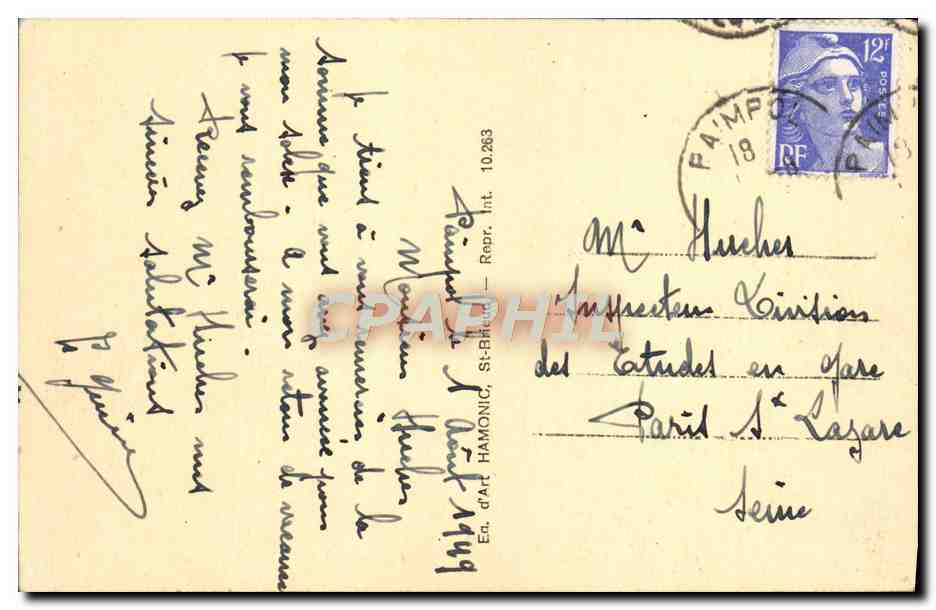 Paimpol le 1 Août 1949
Monsieur Hucher
Je tiens à vous remercier de la
somme que vous avez avancée pour
mon solde. A mon retour de vacances
je vous rembourserai.
Recevez Mr Hucher mes
sincères salutations
Ed. d'Art HAMONIC, St-Brieuc — Repr. Int. 10.263
CPAPHIL
12F
POSTES
RF
PAIMPOL
18
PAIM
18
Mr Hucher
Inspecteur Division
des Etudes en gare
Paris St Lazare
Seine